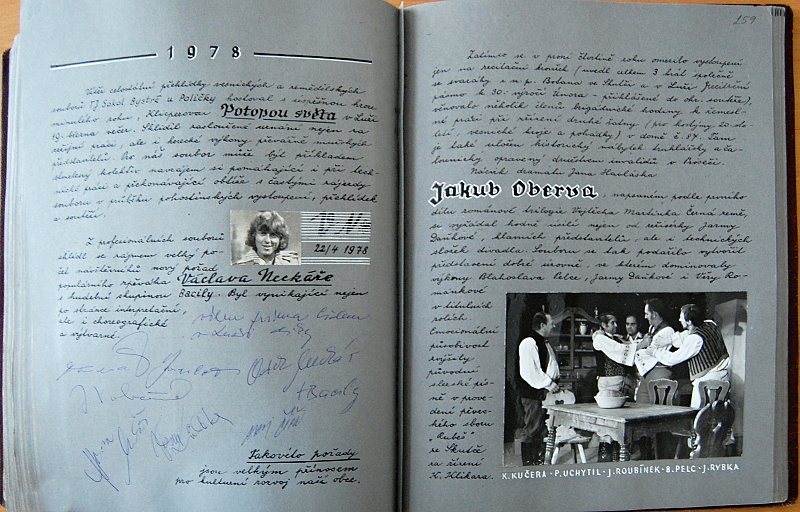 1978
Vítěz celostátní přehlídky vesnických a zemědělských
souborů TJ Sokol Bystré u Poličky hostoval s úspěšnou hrou
minulého roku, Klicperovou Potopou světa v Luži
19. března večer. Sklidil zasloučené uznání nejen za
režijní práci, ale i herecké výkony převážně mužských
představitelů. Pro náš soubor může být příkladem
kolektiv navzájem si pomáhající i při tech-
nické práci a překonávající obtíže s častými zájezdy
souboru v průběhu pohostinských vystoupení, přehlídek
a soutěží.
22/4 1978
Z profesionálních souborů
shlédl se zájmem velký po-
čet návštěvníků nový pořad
populárního zpěváka Václava Neckáře
s hudební skupinou Bacily. Byl vynikající nejen
po stránce interpretační,
ale i choreografické
a výtvarné.
všem
v Luži
+ Bacily
Takovéto pořady
jsou velkým přínosem
pro kulturní rozvoj naší obce.
159
Zatímco se v první čtvrtině roku omezilo vystoupení
jen na recitační kroužek (uvedl celkem 3 krát společně
se svazáky z n.p. Botana ve Skutči a v Luži recitační
pásmo k 30. výročí Února - přihlášené do okr. soutěže),
věnovalo několik členů brigádnické hodiny k řemesl-
né práci při zřízení druhé žudny (pro hostýmy 20. sto-
letí, vesnické kroje a pohádky) v domě č. 87. Tam
je také uložen historický nábytek truhlářsky a ča-
lounicky opravený družstvem invalidů v Proseči.
Nácvik dramatu Jana Havláska
Jakub Oberva, napsaném podle prvního
dílu románové trilogie Vojtěcha Martínka Černá země,
si vyžádal hodně úsilí nejen od režisérky Jarmy
Daňkové, hlavních představitelů, ale i technických
složek divadla. Souboru se tak podařilo vytvořit
představení dobré úrovně, ve kterém dominovaly
výkony Blahoslava Pelce, Jarmy Daňkové i Věry Ro-
mánkové
v titulních
rolích.
Emocionální
působivost
zvýšily
původní
slezské pís-
ně v prove-
dení pěvec-
kého sboru
„Rubeš"
ze Skutče
za řízení
K. Klikara.
K. KUČERA - P. UCHYTIL - J. ROUBÍNEK - B. PELC - J. RYBKA